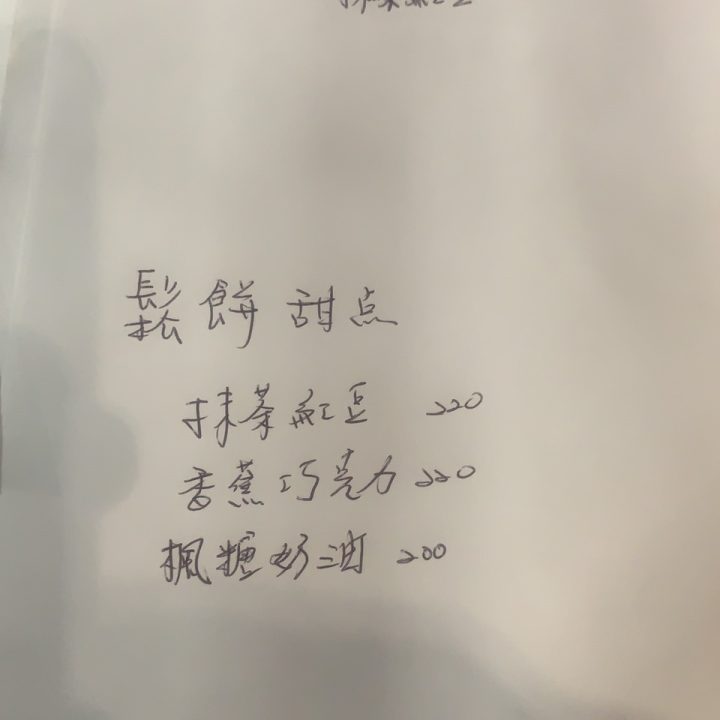 鬆餅甜点
抹茶紅豆 220
香蕉巧克力 220
楓糖奶油 200